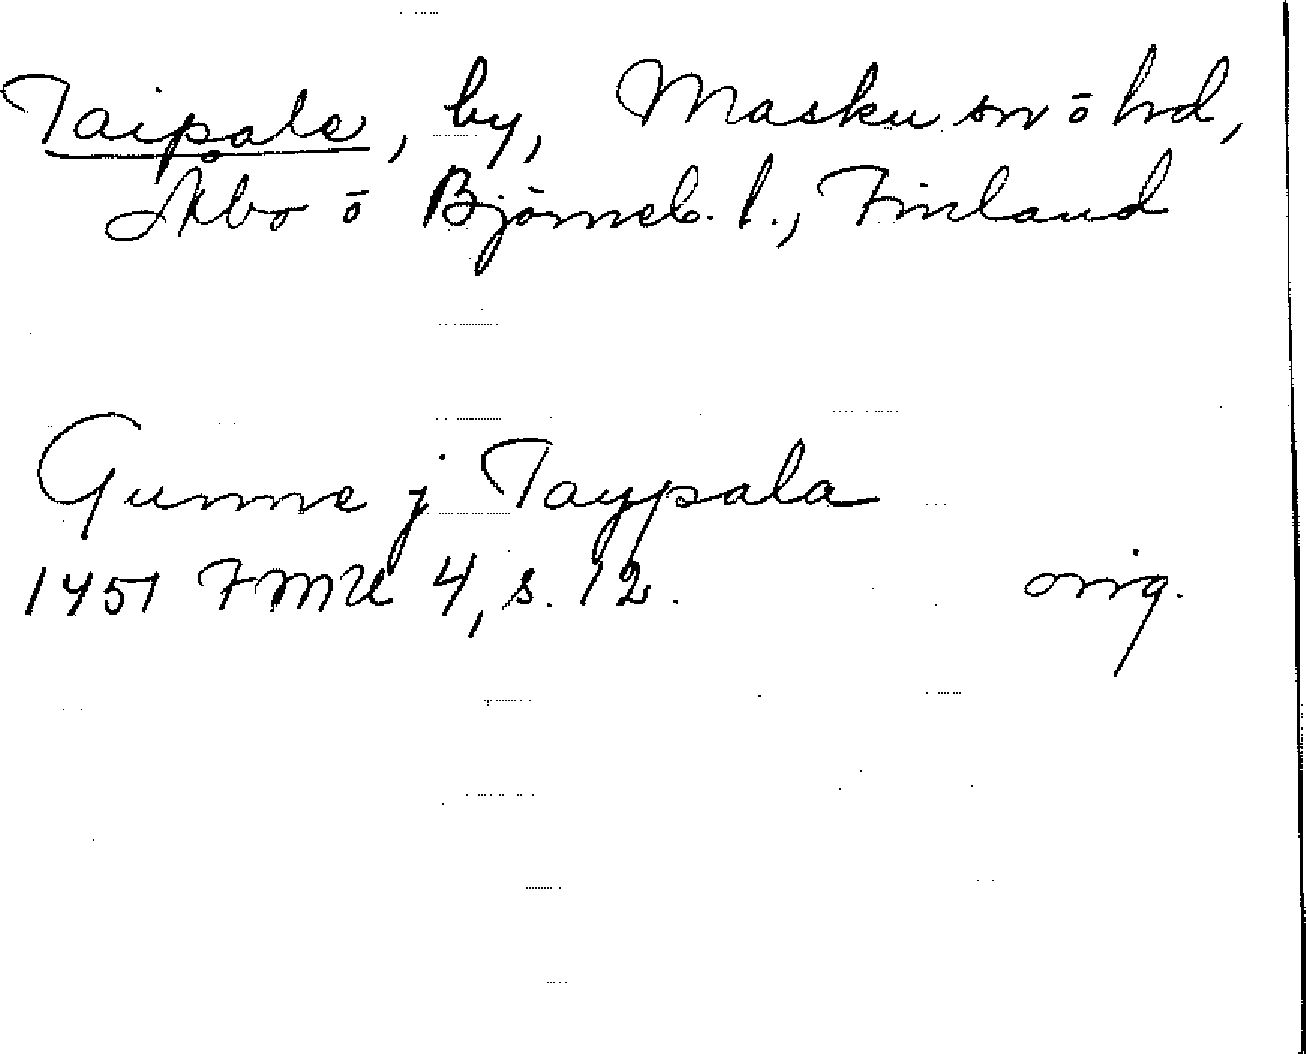 Taipale, by, Masku sn ō hd,
Åbo ō Björneb. l., Finland
Gunne j Taypala
1451 FMU 4, s. 12. orig.